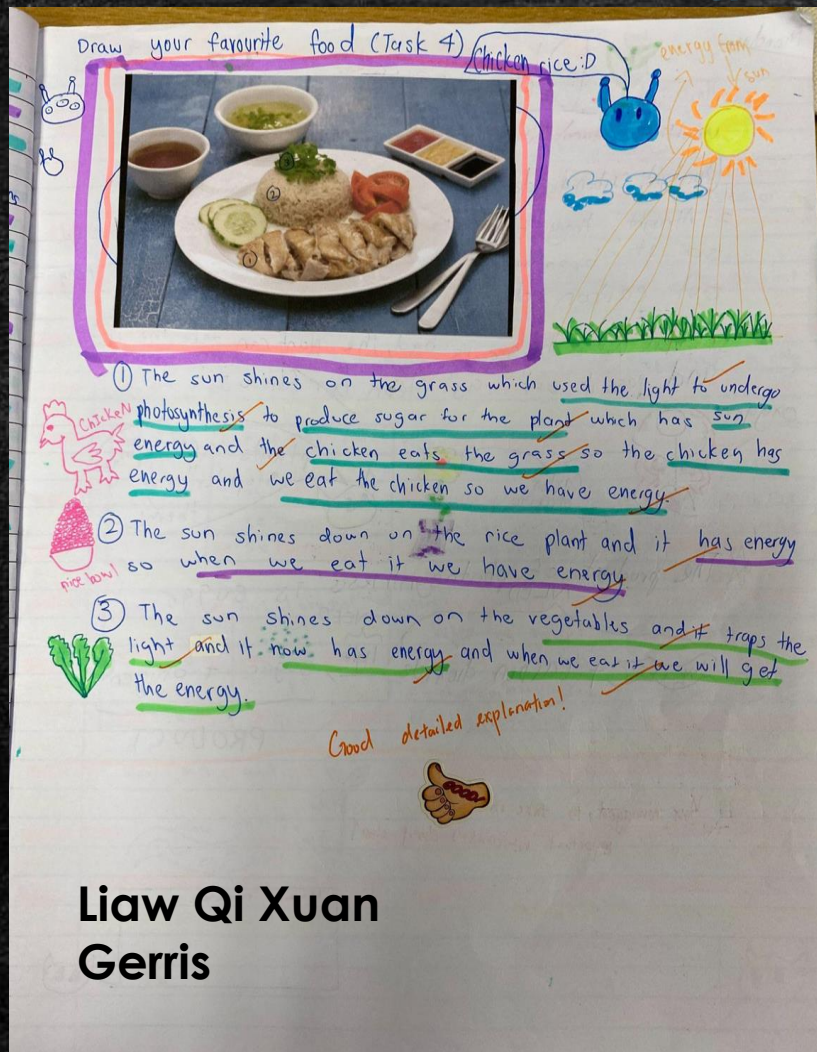 Draw your favourite food (Task 4)
Chicken rice :D
energy from
sun
① The sun shines on the grass which used the light to undergo
photosynthesis to produce sugar for the plant which has sun
energy and the chicken eats the grass so the chicken has
energy and we eat the chicken so we have energy.
Chicken
② The sun shines down on the rice plant and it has energy
so when we eat it we have energy
rice bowl
③ The sun shines down on the vegetables and it traps the
light and it now has energy and when we eat it we will get
the energy.
Good detailed explanation!
GOOD
Liaw Qi Xuan
Gerris